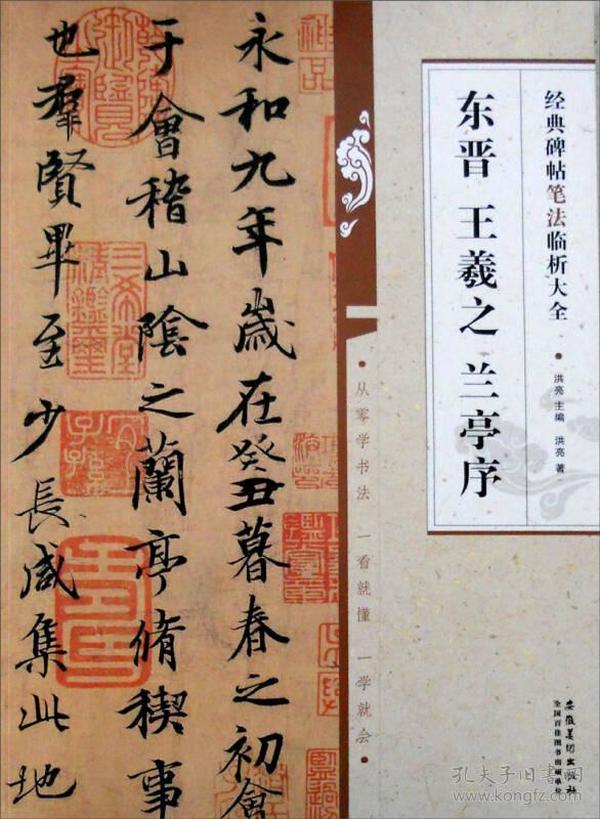 永和九年歲在癸丑暮春之初會
于會稽山陰之蘭亭脩稧事
也羣賢畢至少長咸集此地
经典碑帖笔法临析大全
东晋 王羲之 兰亭序
洪亮 主编 洪亮 著
·从零学书法 一看就懂 一学就会·
安徽美术出版社
全国百佳图书出版单位
孔夫子旧书网
www.kongfz.com